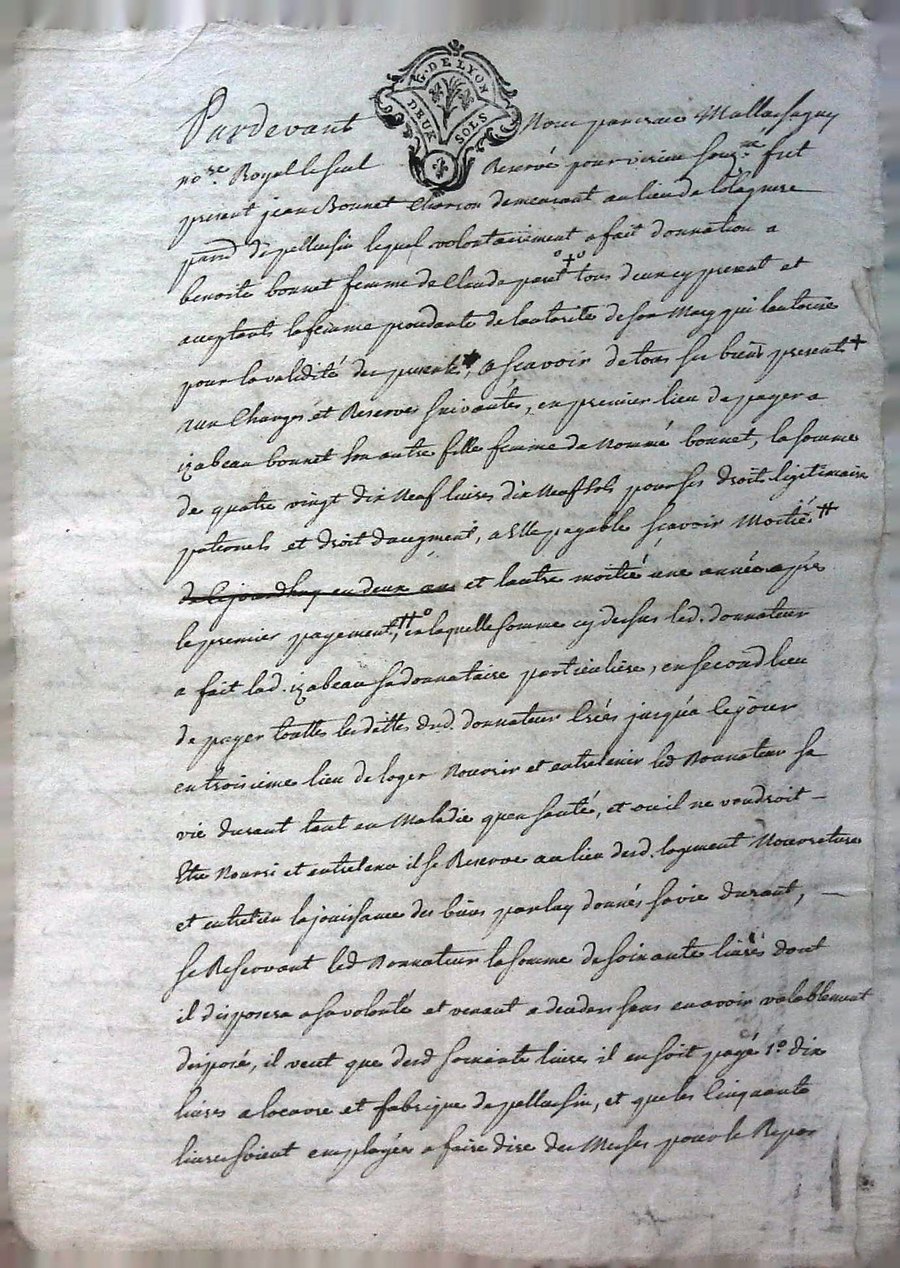 G. DE LYON
DEUX SOLS
Pardevant Nous pancrace Mallassagny
no.re Royal le seul Reservé pour virieu sousg.né fut
present jean Bonnet Charron demeurant au lieu de
par.d de pellussin lequel volontairement a fait donnation a
benoite bonnet femme de Claude petit °+° tous deux icy present et
acceptants la femme procedante de lautorité de son Mary qui lautorise
pour la validité des presentes, a scavoir de tous ses biens presents +
aux Charges et Reserves suivantes, en premier lieu de payer a
izabeau bonnet son autre fille femme de Nommé bonnet, la somme
de quatre vingt dix Neuf livres dix Neuf sols pour ses droits legitimaire
paternels et droit daugment, a Elle payable scavoir Moitié #
de cejourdhuy en deux ans et lautre moitié une année après
le premier payement, #° en laquelle somme cy dessus led. donnateur
a fait lad. izabeau sa donnataire particulière, en second lieu
de payer touttes les dettes dud. donnateur Créés jusqu'a ce jour
en troisieme lieu de loger Nourrir et entretenir led Donnateur sa
vie durant tant en Maladie quen santé, et ou il ne voudroit
Etre Nourri et entretenu il se Reserve au lieu desd. logement Nourreture
et entretien la jouissance des biens par luy donnés sa vie durant,
se Reservant led Donnateur la somme de soixante livres dont
il disposera a sa volonté et venant a deceder sans en avoir valablement
disposé, il veut que desd soixante livres il en soit payé 1° dix
livres a locuvre et fabrique de pellussin, et que les Cinquante
livres soient employées a faire dire des Messes pour le Repos